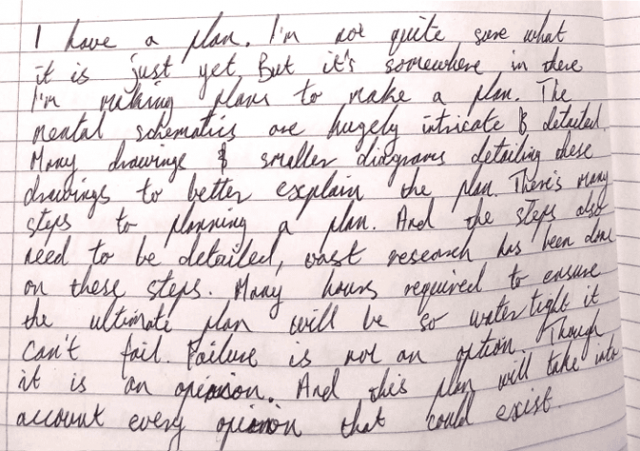 I have a plan. I'm not quite sure what
it is just yet, But it's somewhere in there
I'm making plans to make a plan. The
mental schematics are hugely intricate & detailed.
Many drawings & smaller diagrams detailing these
drawings to better explain the plan. There's many
steps to planning a plan. And the steps also
need to be detailed, vast research has been done
on these steps. Many hours required to ensure
the ultimate plan will be so water tight it
can't fail. Failure is not an option. Though
it is an opinion. And this plan will take into
account every opinion that could exist.